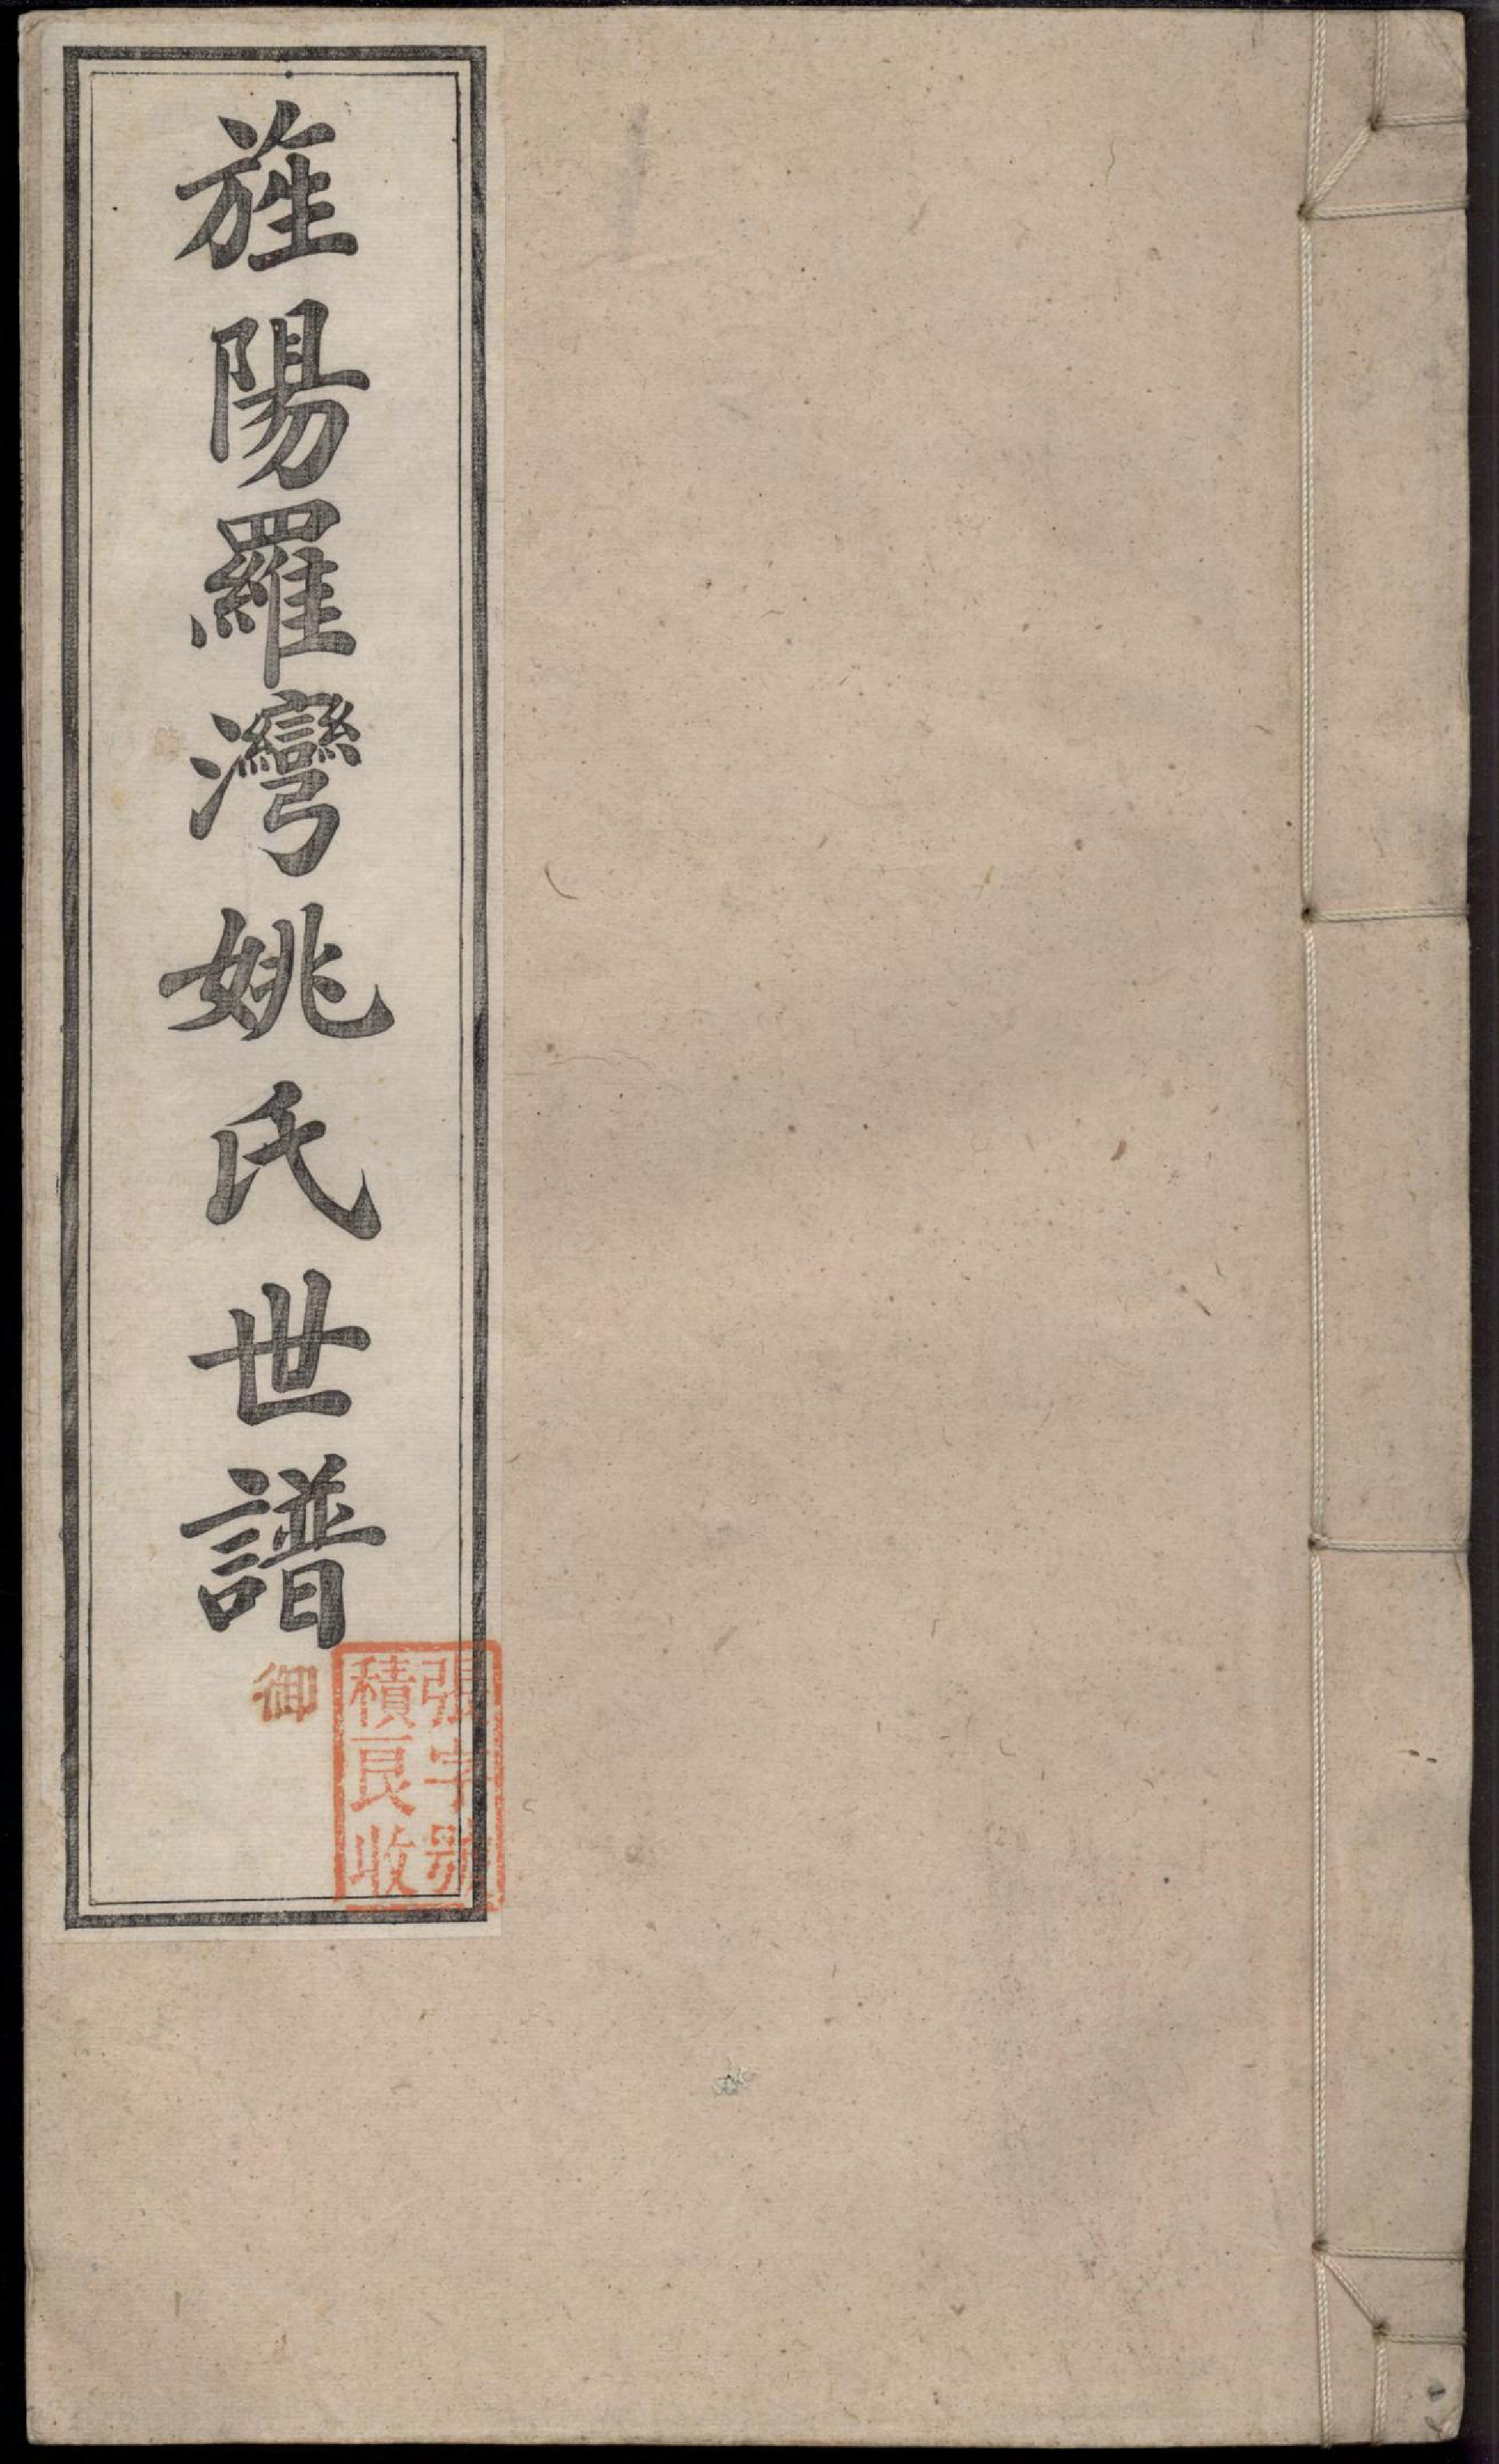 旌陽羅灣姚氏世譜
御
張字號
積良收